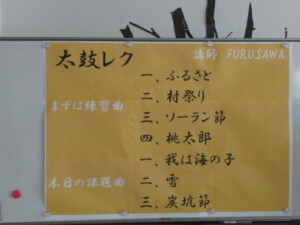 太鼓レク
講師 FURUSAWA
まずは練習曲
一、ふるさと
二、村祭り
三、ソーラン節
四、桃太郎
本日の課題曲
一、我は海の子
二、雪
三、炭坑節